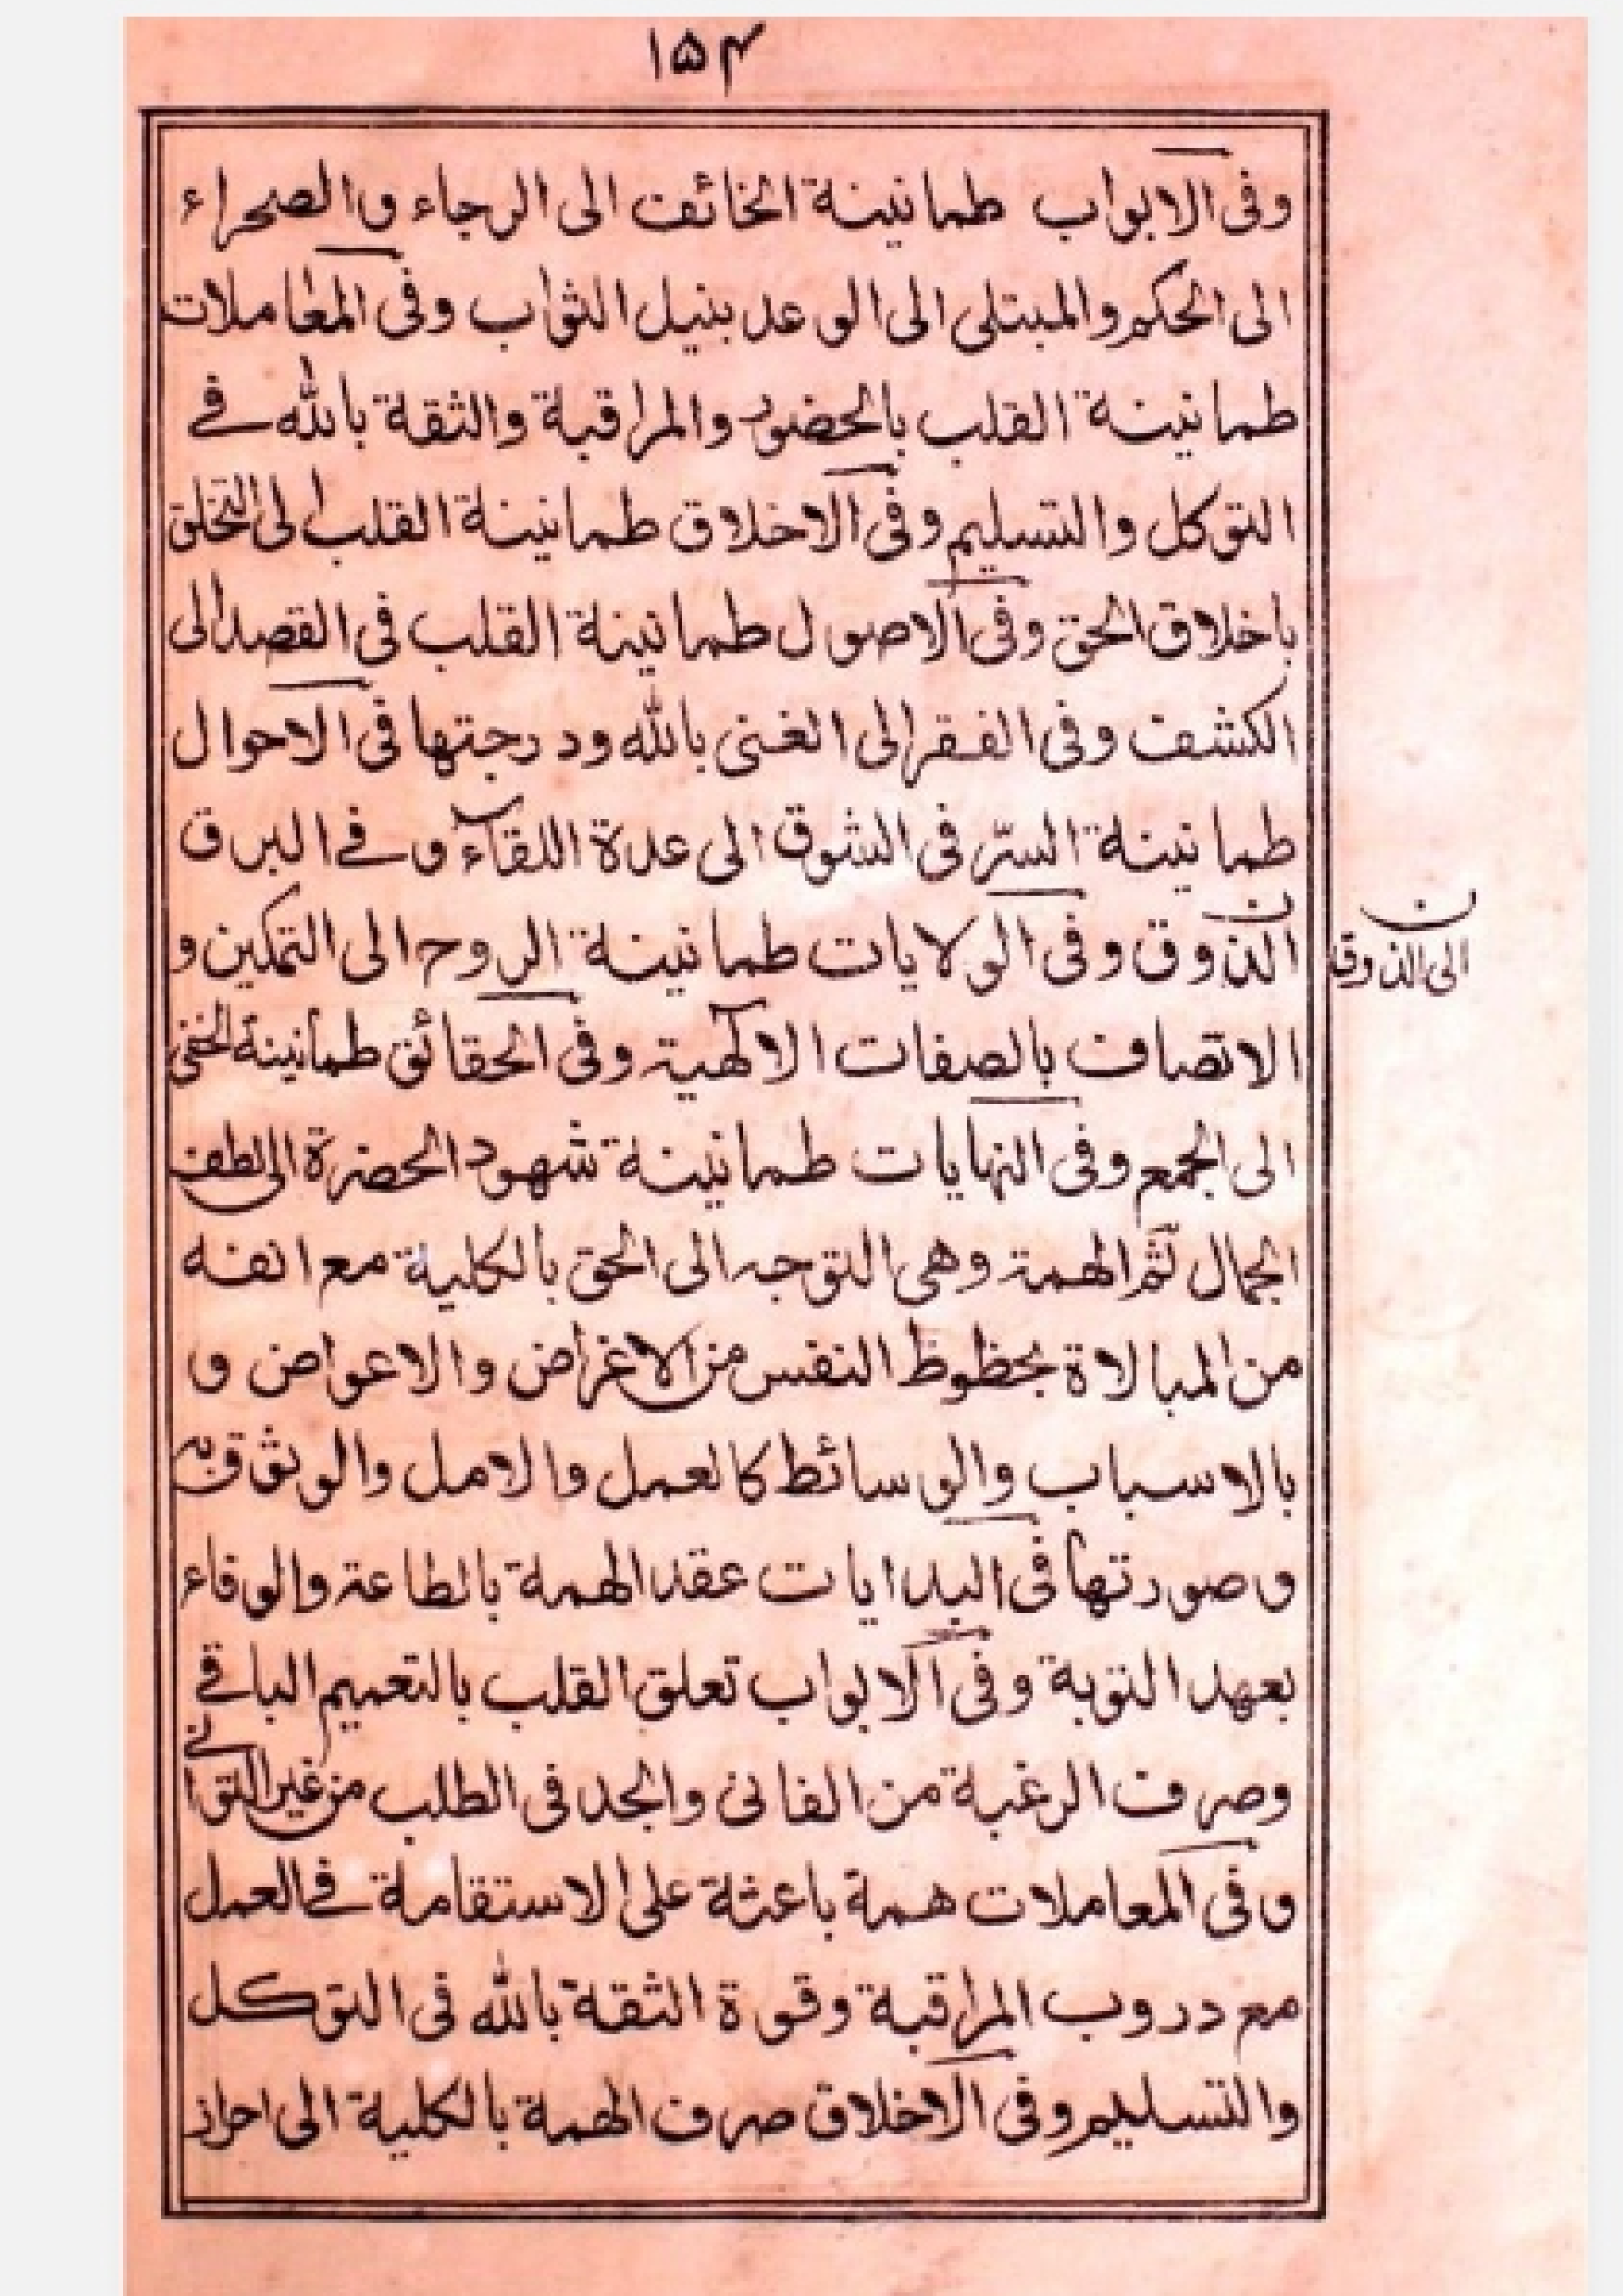 ۱۵۴
وفى الابواب طمانينة الخائف الى الرجاء والصحراء
الى الحكم والمبتلى الى الوعد بنيل الثواب وفى المعاملات
طمانينة القلب بالحضور والمراقبة والثقة بالله فے
التوكل والتسليم وفى الاخلاق طمانينة القلب الى التخلق
باخلاق الحق وفى الاصول طمانينة القلب فى القصد الى
الكشف وفى الفقر الى الغنى بالله ودرجتها فى الاحوال
طمانينة السرّ فى الشوق الى عدة اللقآء و فے البرق
الذوق وفى الولايات طمانينة الروح الى التمكين و
ن
الى الذوق
الاتصاف بالصفات الالٓهية وفى الحقائق طمانينة الخفى
الى الجمع وفى النهايات طمانينة شهود الحضرة الى لطف
الجمال ثم الهمة وهى التوجه الى الحق بالكلية مع انفه
من المبالاة بحظوظ النفس من الاغراض والاعواض و
بالاسباب والوسائط كالعمل والامل والوثوق به
وصورتها فى البدايات عقد الهمة بالطاعة والوفاء
بعهد التوبة وفى الابواب تعلق القلب بالتعميم الباقے
وصرف الرغبة من الفانى والجد فى الطلب من غير التوانے
وفى المعاملات همة باعثة على الاستقامة فے العمل
مع دروب المراقبة وقوة الثقة بالله فى التوكل
والتسليم وفى الاخلاق صرف الهمة بالكلية الى احراز